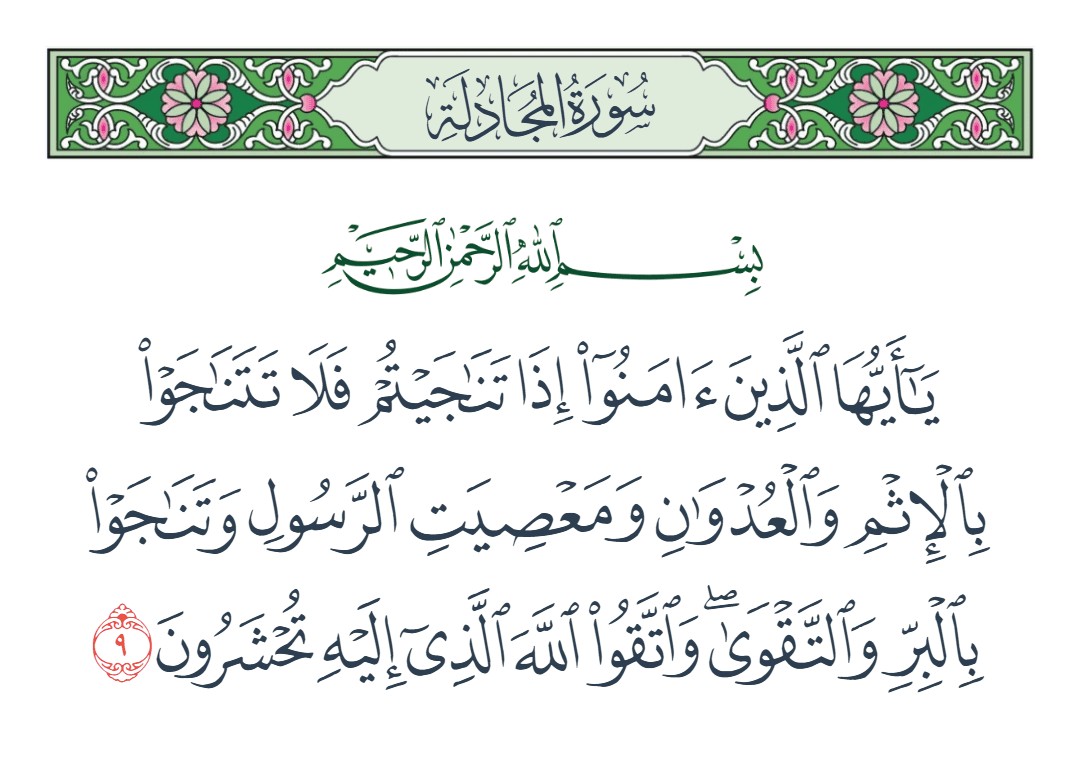 سُورَةُ المُجَادلَةِ
بِسْمِ ٱللَّهِ ٱلرَّحْمَٰنِ ٱلرَّحِيمِ
يَٰٓأَيُّهَا ٱلَّذِينَ ءَامَنُوٓا۟ إِذَا تَنَٰجَيْتُمْ فَلَا تَتَنَٰجَوْا۟
بِٱلْإِثْمِ وَٱلْعُدْوَٰنِ وَمَعْصِيَتِ ٱلرَّسُولِ وَتَنَٰجَوْا۟
بِٱلْبِرِّ وَٱلتَّقْوَىٰ ۖ وَٱتَّقُوا۟ ٱللَّهَ ٱلَّذِىٓ إِلَيْهِ تُحْشَرُونَ ٩